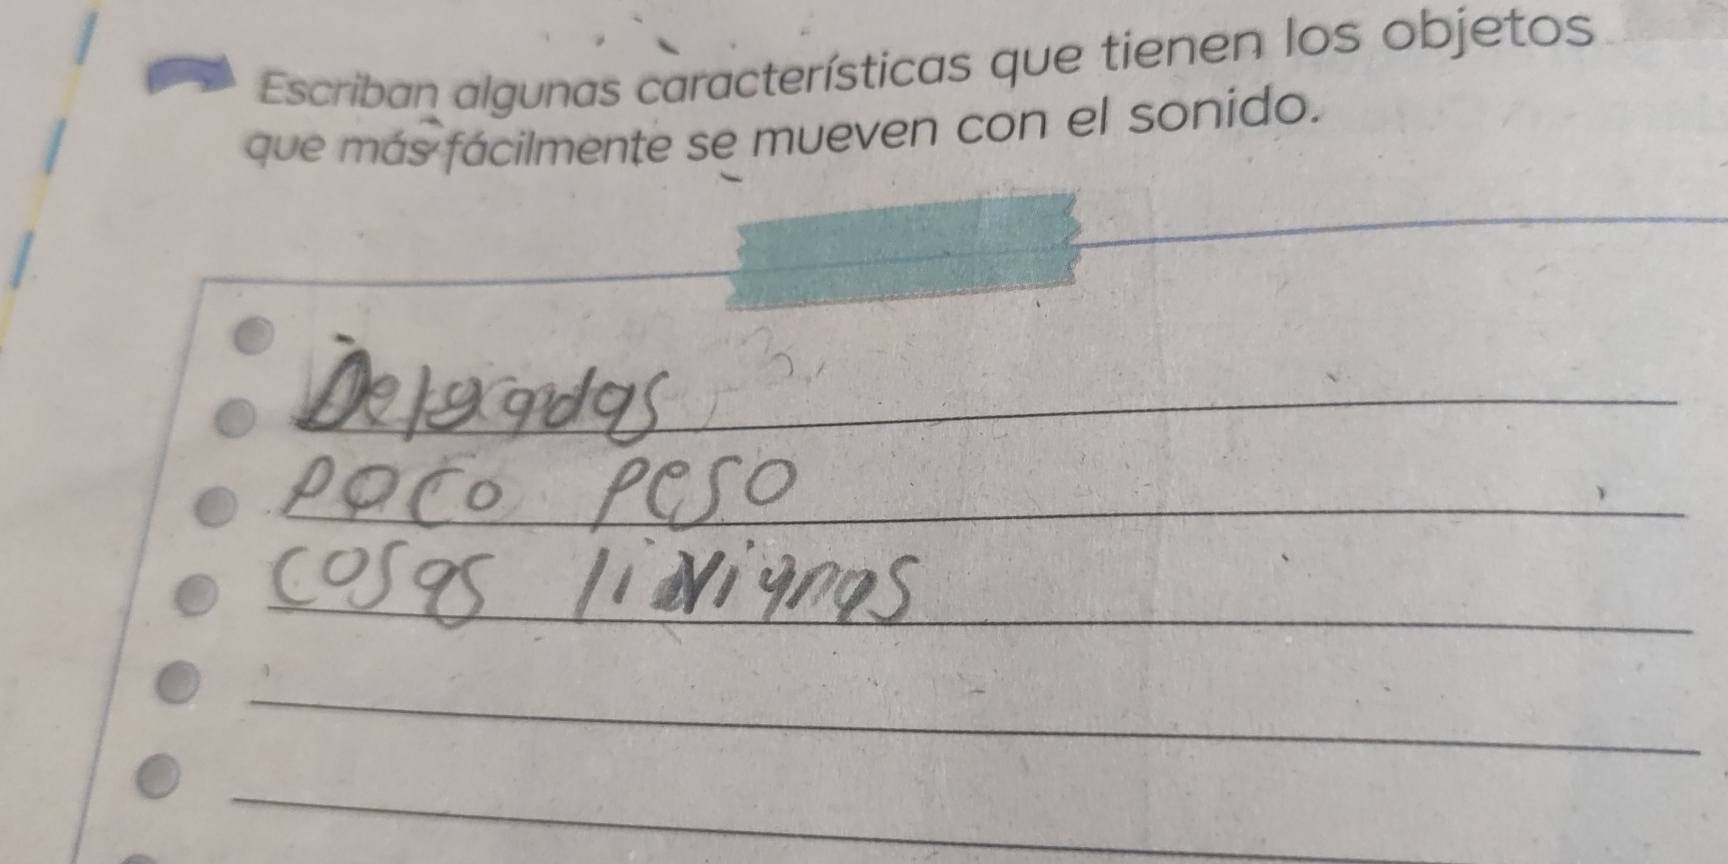 Escriban algunas características que tienen los objetos
que más fácilmente se mueven con el sonido.
Delgadas
poco peso
cosas livianas